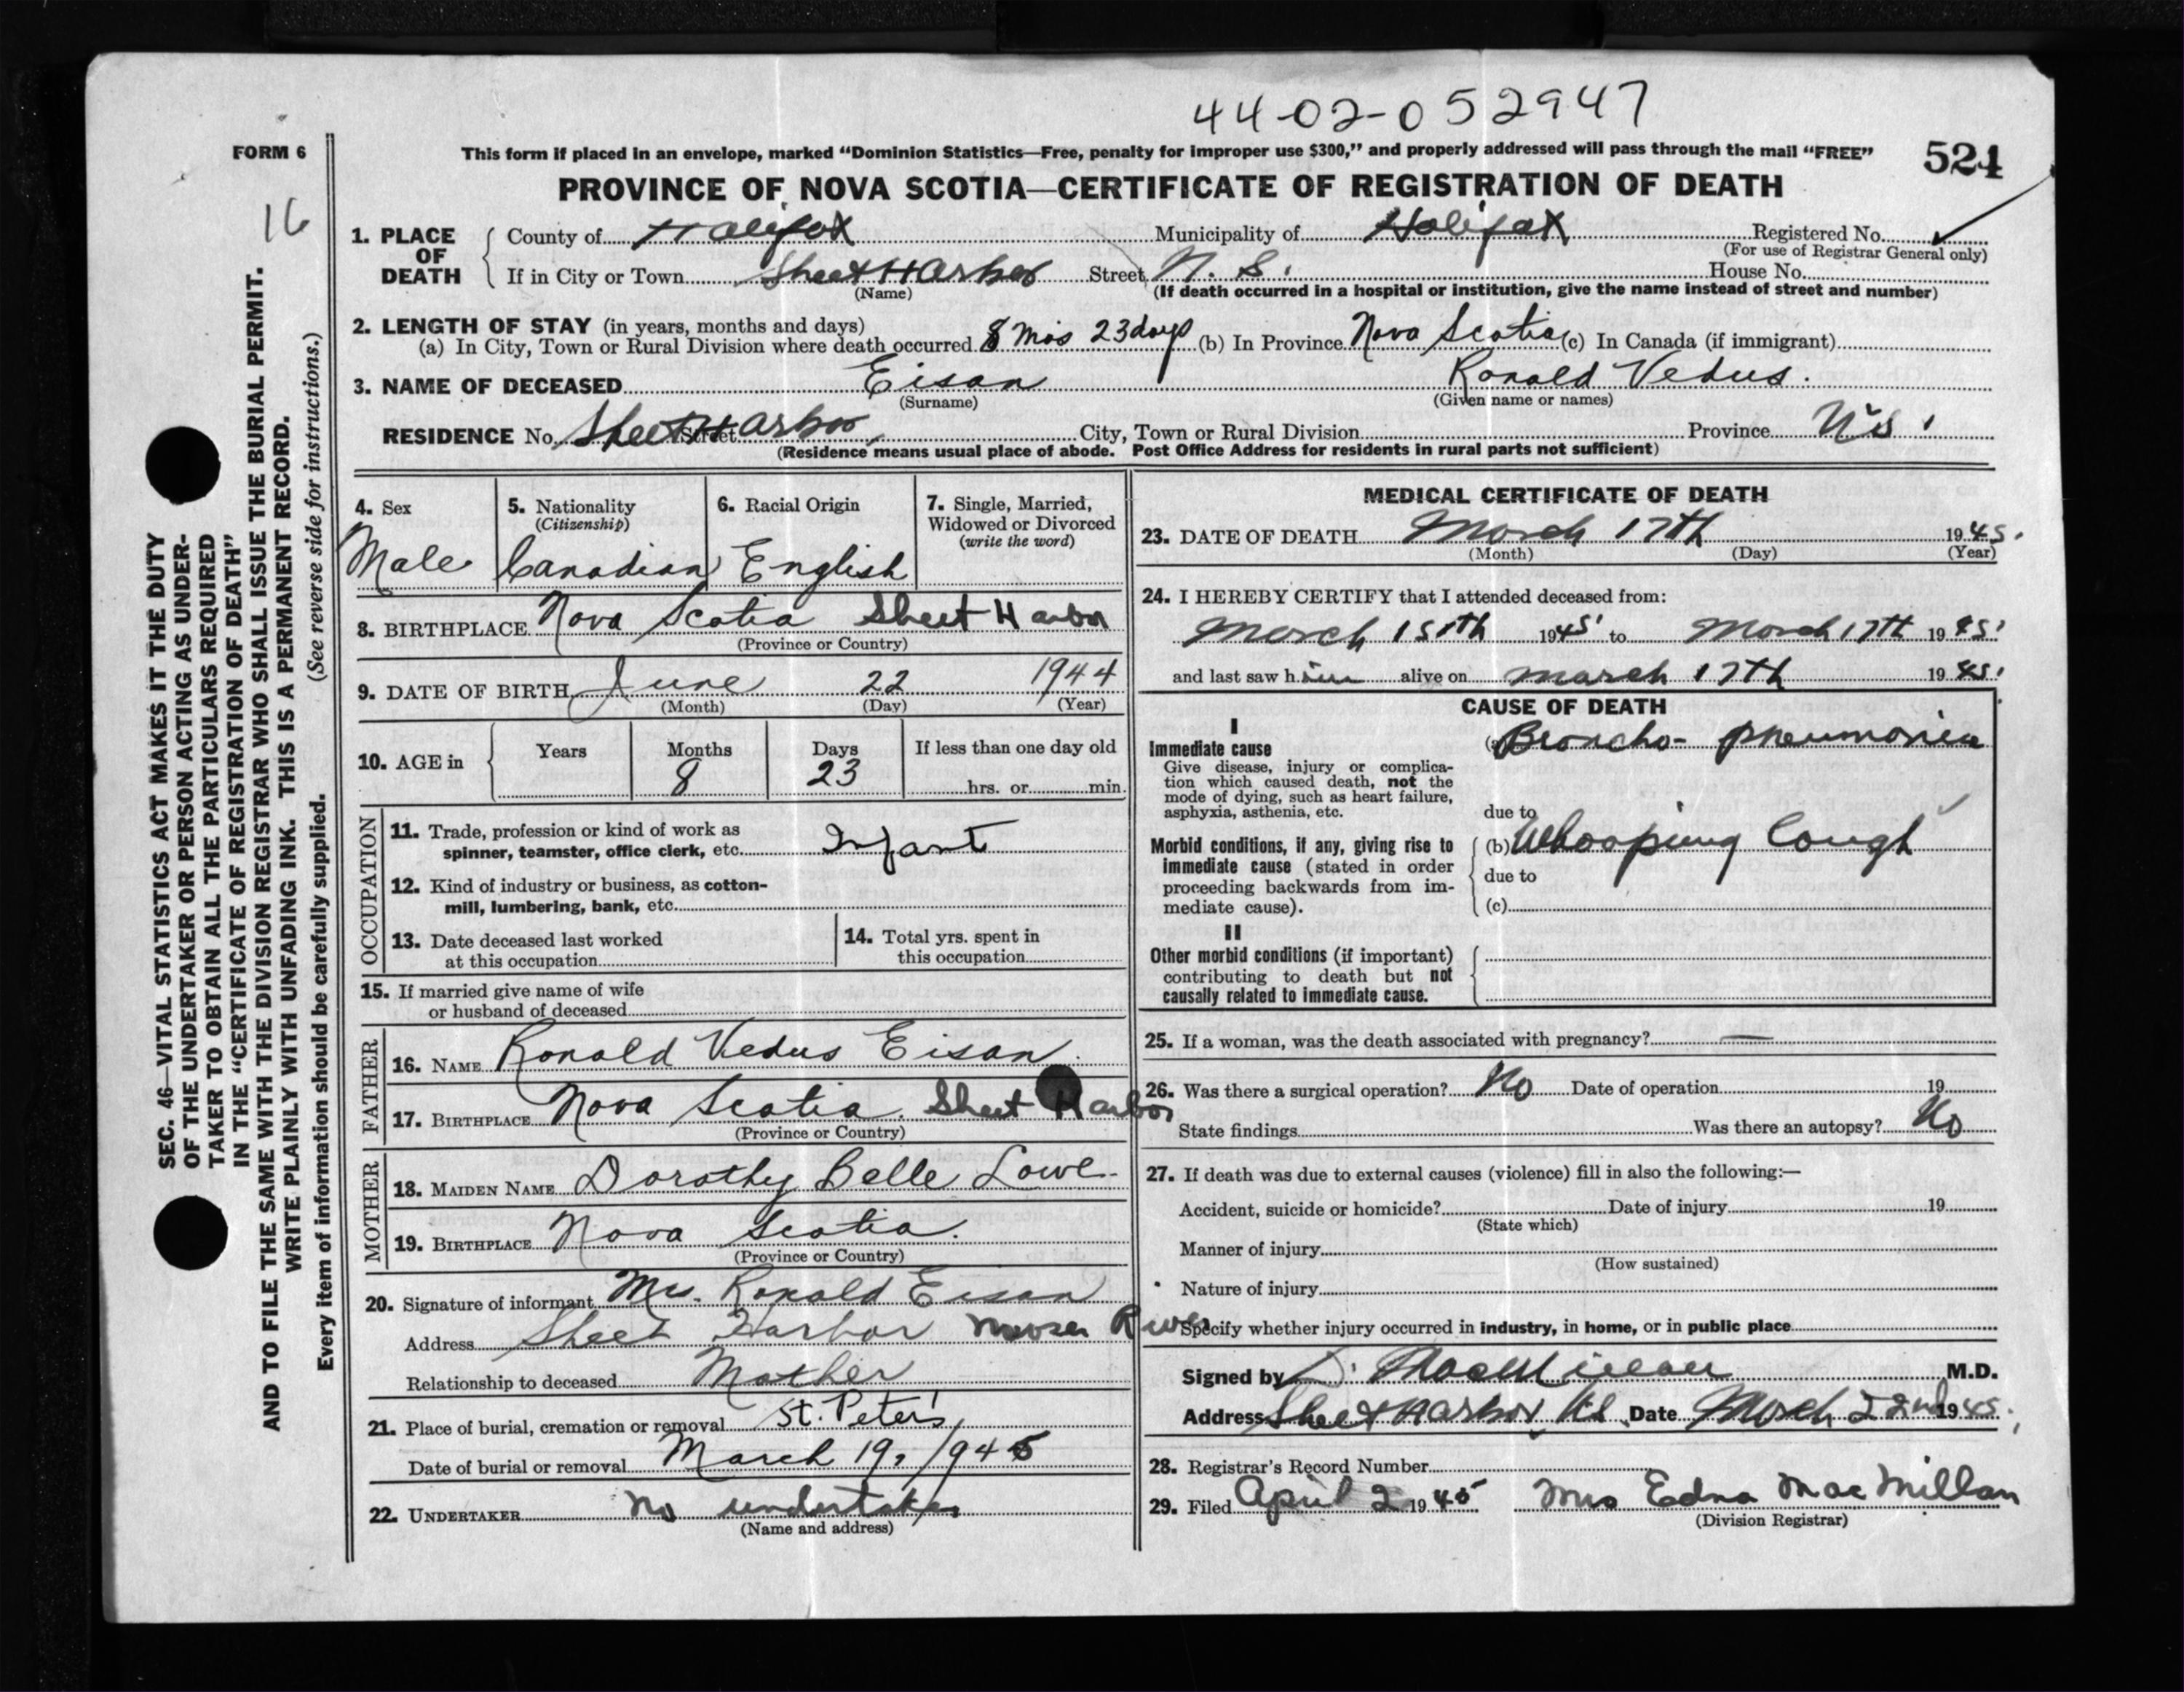 44-02-052947
FORM 6
This form if placed in an envelope, marked “Dominion Statistics—Free, penalty for improper use $300,” and properly addressed will pass through the mail “FREE”
524
PROVINCE OF NOVA SCOTIA—CERTIFICATE OF REGISTRATION OF DEATH
16
1. PLACE OF DEATH
County of Halifax Municipality of Halifax Registered No.
(For use of Registrar General only)
If in City or Town Sheet Harbor Street N. S. House No.
(Name) (If death occurred in a hospital or institution, give the name instead of street and number)
2. LENGTH OF STAY (in years, months and days)
(a) In City, Town or Rural Division where death occurred 8 Mos 23 days (b) In Province Nova Scotia (c) In Canada (if immigrant)
3. NAME OF DECEASED Eisan Ronald Vedus.
(Surname) (Given name or names)
RESIDENCE No. Street Sheet Harbor, City, Town or Rural Division Province N.S.
(Residence means usual place of abode. Post Office Address for residents in rural parts not sufficient)
SEC. 46—VITAL STATISTICS ACT MAKES IT THE DUTY
OF THE UNDERTAKER OR PERSON ACTING AS UNDER-
TAKER TO OBTAIN ALL THE PARTICULARS REQUIRED
IN THE “CERTIFICATE OF REGISTRATION OF DEATH”
AND TO FILE THE SAME WITH THE DIVISION REGISTRAR WHO SHALL ISSUE THE BURIAL PERMIT.
WRITE PLAINLY WITH UNFADING INK. THIS IS A PERMANENT RECORD.
Every item of information should be carefully supplied. (See reverse side for instructions.)
4. Sex
Male
5. Nationality
(Citizenship)
Canadian
6. Racial Origin
English
7. Single, Married,
Widowed or Divorced
(write the word)
8. BIRTHPLACE Nova Scotia Sheet Harbor
(Province or Country)
9. DATE OF BIRTH June 22 1944
(Month) (Day) (Year)
10. AGE in
Years Months Days If less than one day old
8 23
hrs. or min.
OCCUPATION
11. Trade, profession or kind of work as
spinner, teamster, office clerk, etc. Infant
12. Kind of industry or business, as cotton-
mill, lumbering, bank, etc.
13. Date deceased last worked
at this occupation
14. Total yrs. spent in
this occupation
15. If married give name of wife
or husband of deceased
FATHER
16. NAME Ronald Vedus Eisan
17. BIRTHPLACE Nova Scotia. Sheet Harbor
(Province or Country)
MOTHER
18. MAIDEN NAME Dorothy Belle Lowe
19. BIRTHPLACE Nova Scotia.
(Province or Country)
20. Signature of informant Mrs. Ronald Eisan
Address Sheet Harbor Moser River
Relationship to deceased Mother
21. Place of burial, cremation or removal St. Peter's
Date of burial or removal March 19, 1945
22. UNDERTAKER no undertaker
(Name and address)
MEDICAL CERTIFICATE OF DEATH
23. DATE OF DEATH March 17th 1945.
(Month) (Day) (Year)
24. I HEREBY CERTIFY that I attended deceased from:
March 15th 1945 to March 17th 1945
and last saw him alive on March 17th 1945
CAUSE OF DEATH
I
Immediate cause
Give disease, injury or complica-
tion which caused death, not the
mode of dying, such as heart failure,
asphyxia, asthenia, etc.
(a) Broncho-pneumonia
due to
Morbid conditions, if any, giving rise to
immediate cause (stated in order
proceeding backwards from im-
mediate cause).
(b) Whooping Cough
due to
(c)
II
Other morbid conditions (if important)
contributing to death but not
causally related to immediate cause.
25. If a woman, was the death associated with pregnancy? —
26. Was there a surgical operation? No Date of operation 19
State findings Was there an autopsy? No
27. If death was due to external causes (violence) fill in also the following:—
Accident, suicide or homicide? Date of injury 19
(State which)
Manner of injury
(How sustained)
Nature of injury
Specify whether injury occurred in industry, in home, or in public place
Signed by D. MacMillan M.D.
Address Sheet Harbor NS. Date March 22nd 1945.
28. Registrar's Record Number
29. Filed April 2 1945 Mrs Edna MacMillan
(Division Registrar)